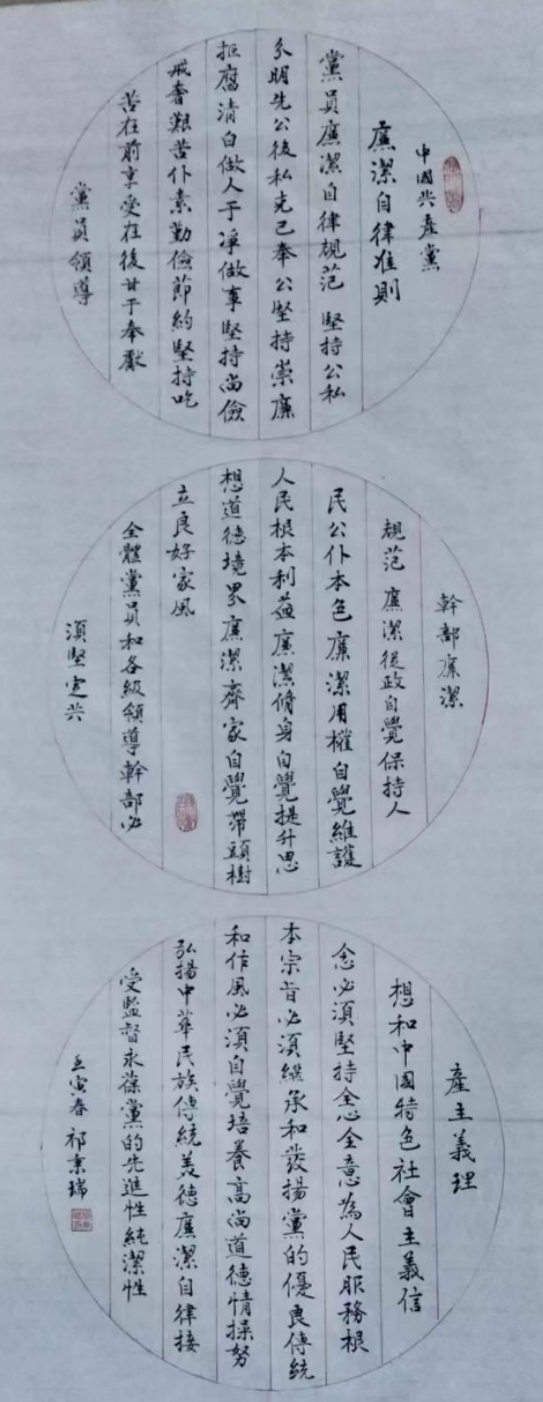 中國共產黨
廉潔自律准則
黨員廉潔自律規范 堅持公私
分明先公後私克己奉公堅持崇廉
拒腐清白做人干凈做事堅持尚儉
戒奢艱苦仆素勤儉節約堅持吃
苦在前享受在後甘于奉獻
黨員領導
幹部廉潔
規范 廉潔從政自覺保持人
民公仆本色廉潔用權自覺維護
人民根本利益廉潔脩身自覺提升思
想道德境界廉潔齊家自覺帶頭樹
立良好家風
全體黨員和各級領導幹部必
須堅定共
產主義理
想和中國特色社會主義信
念必須堅持全心全意為人民服務根
本宗旨必須繼承和發揚黨的優良傳統
和作風必須自覺培養高尚道德情操努
弘揚中華民族傳統美德廉潔自律接
受監督永葆黨的先進性純潔性
壬寅春 祁秉瑞